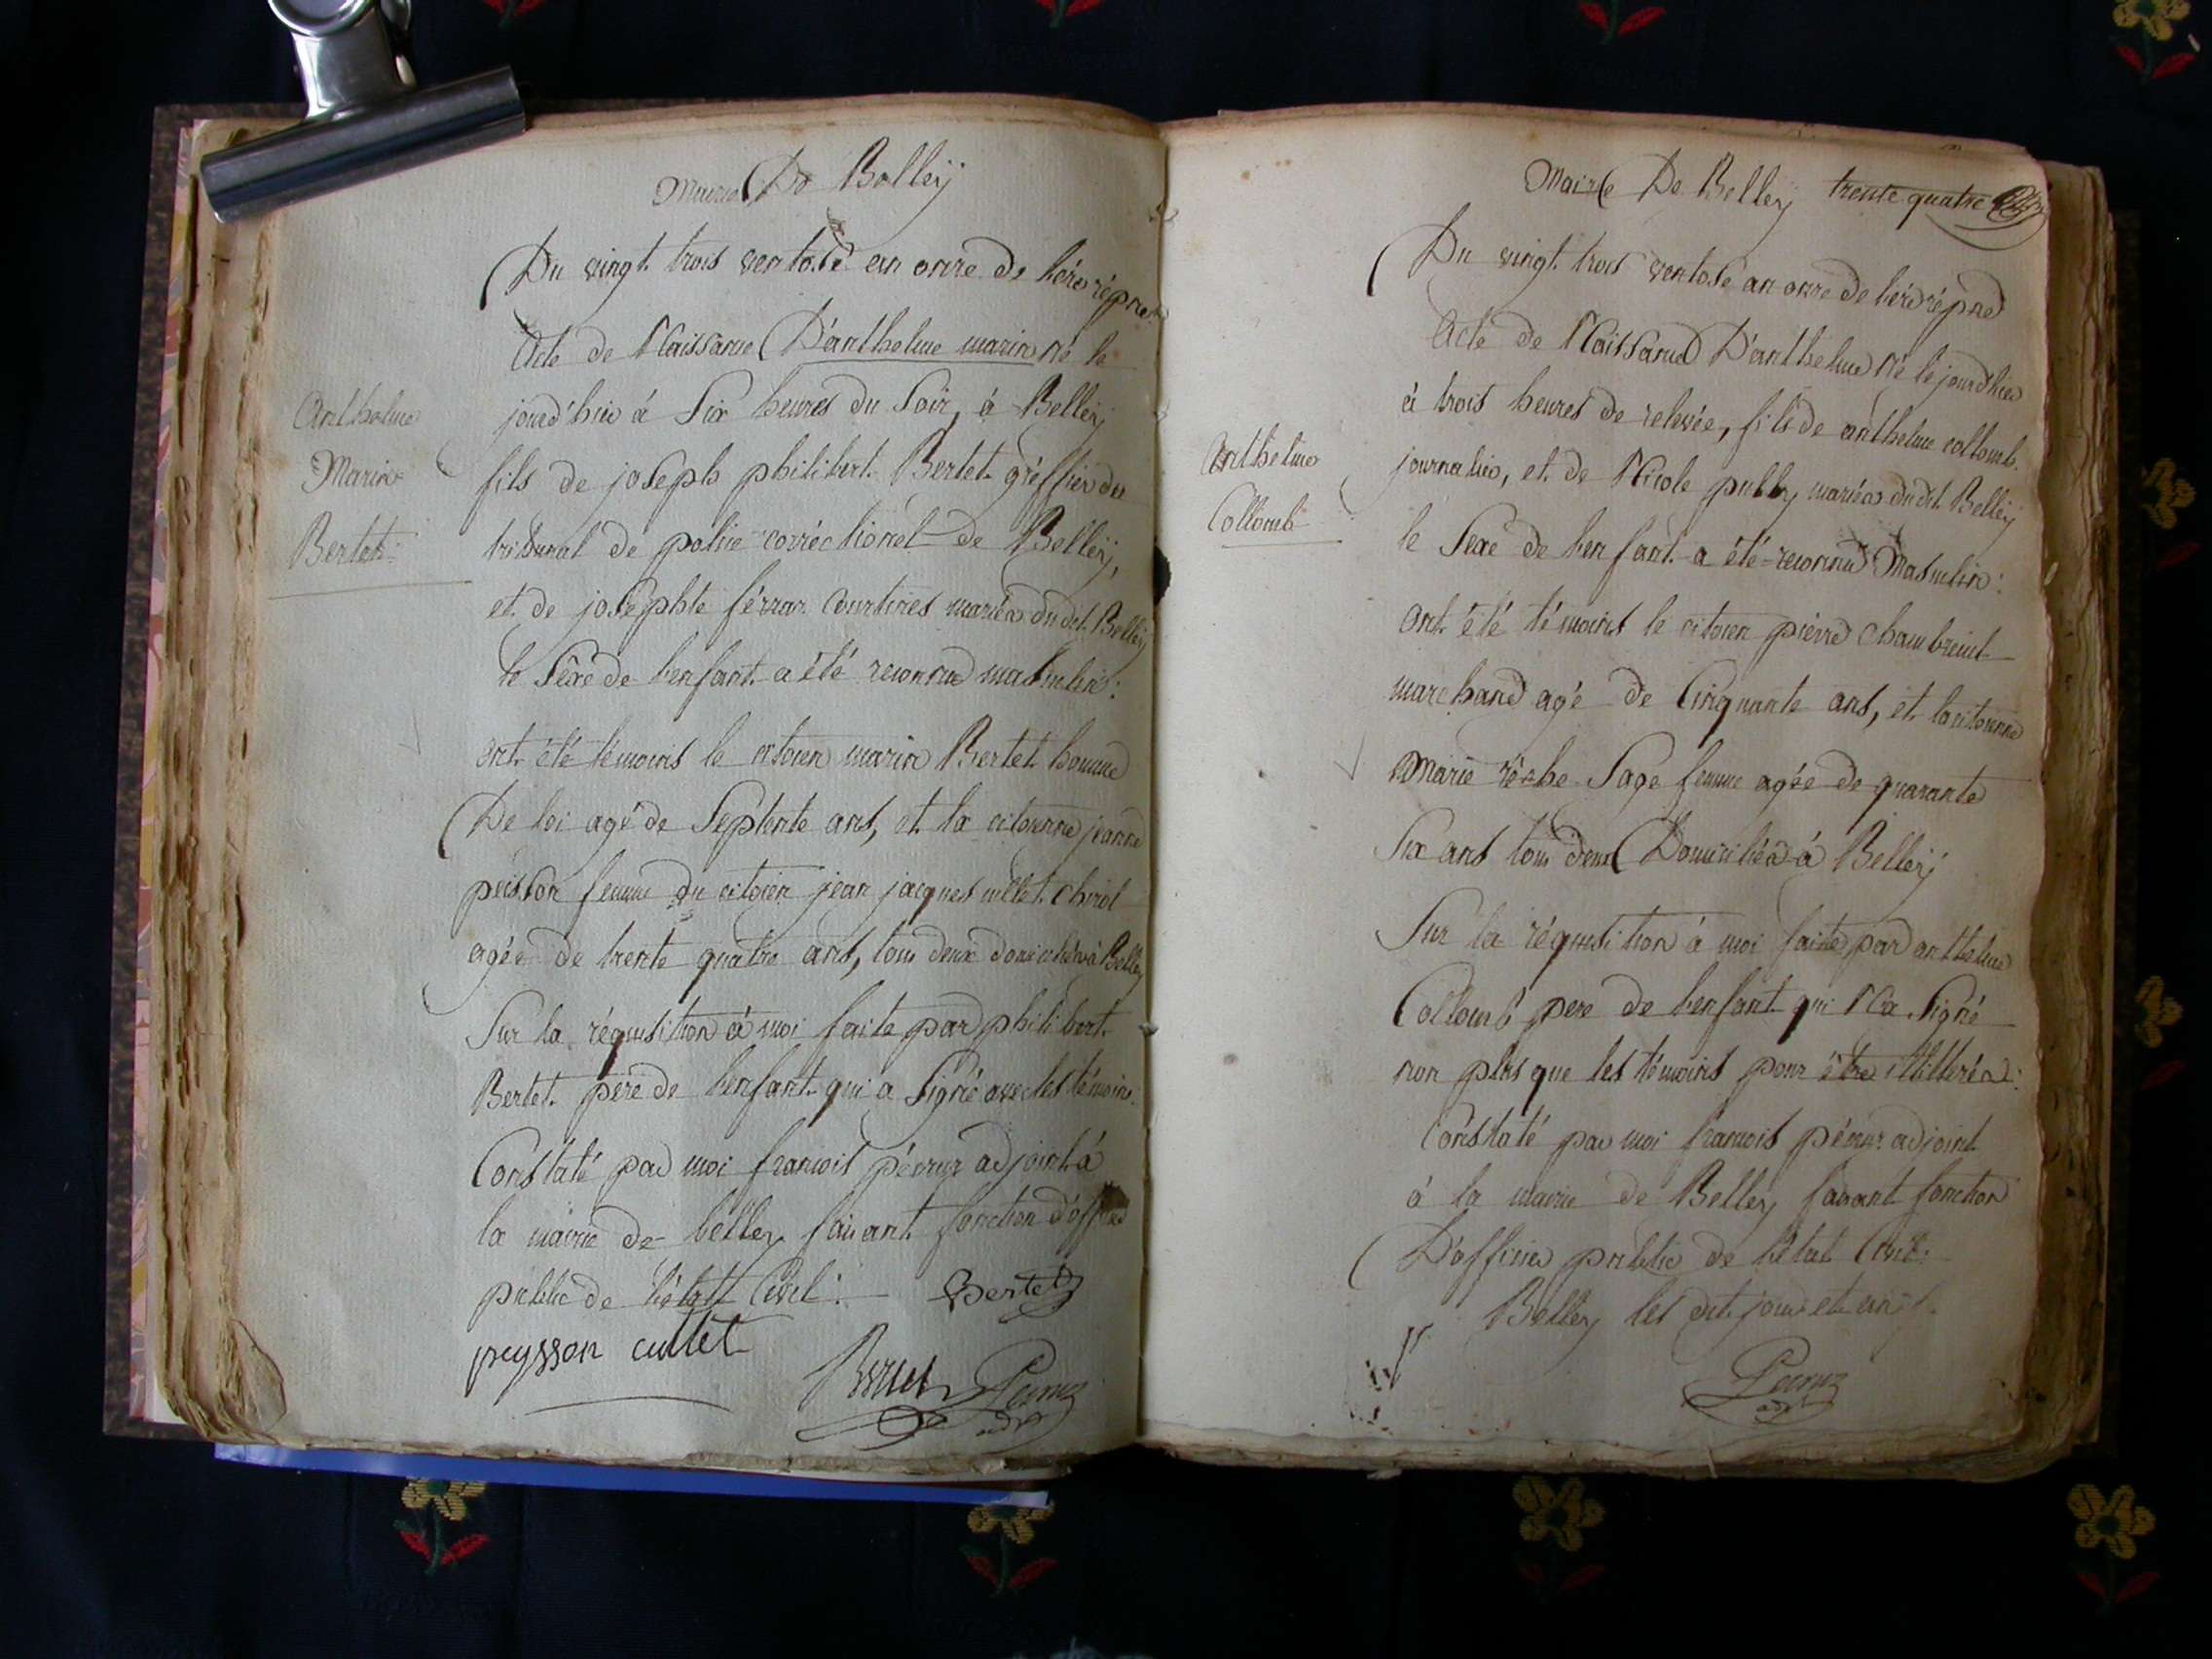 Mairie De Belleÿ
Du vingt trois ventose an onze de l'ère répne
Acte de Naissance D'anthelme marin né le
jourd'hui à Six heures du Soir, à Belleÿ
Anthelme
Marin
Bertet
fils de joseph philibert Bertet gréffier du
tribunal de police corréctionel de Belleÿ,
et de josephte férrar Courtines mariés dudit Belleÿ
le Séxe de l'enfant a été reconnu masculin :
ont été témoins le citoien marin Bertet homme
De loi agé de Séptente ans, et la citoienne jeanne
peisson femme du citoien jean jacques cullet
agée de trente quatre ans, tous deux domiciliés à Belley
Sur la réquisition à moi faite par philibert
Bertet père de l'enfant qui a Signé avec les témoins
Constaté par moi francois adjoint à
la mairie de belley faisant fonction d'officier
public de l'état Civil : Bertet
peysson cullet
Bertet
Mairie De Belleÿ trente quatre
Du vingt trois ventose an onze de l'ère répne
Acte de Naissance D'anthelme Né le jourd'hui
à trois heures de relevée, fils de anthelme collomb
journalier, et de Nicole mariés dudit Belleÿ
Anthelme
Collomb
le Sexe de l'enfant a été reconnu Masculin :
ont été témoins le citoien pierre
marchand agé de Cinquante ans, et la citoienne
Marie Sage femme agée de quarante
Six ans tous deux Domiciliés à Belleÿ
Sur la réquisition à moi faite par anthelme
Collomb pere de l'enfant qui N'a Signé
non plus que les témoins pour être illitérés :
Constaté par moi francois adjoint
à la mairie de Belley faisant fonction
D'officier public de l'état Civil :
Belley les dit jour et an